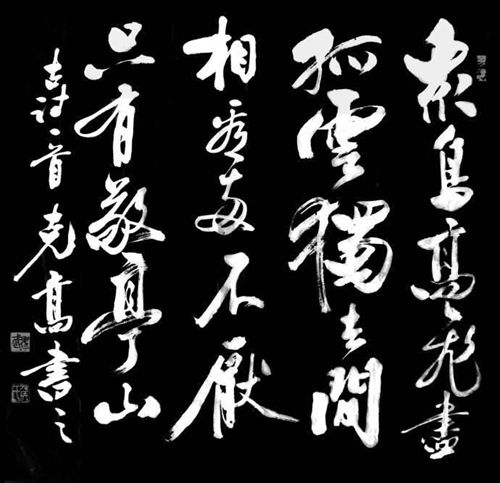 衆鳥高飛盡
孤雲獨去間
相看兩不厭
只有敬亭山
古詩一首克高書之